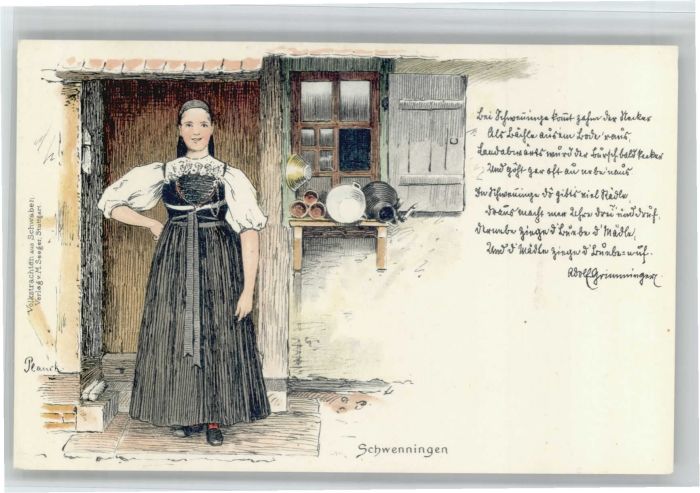 Bei Schwenninge kommt zahm der Necker
Als Bächle aus em Bode raus,
Landabwärts wurd der Bursch bald kecker
Und goht gar oft au nebe naus
In Schwenninge do gibts viel Rädle,
draus macht mer Uhre drei und druf,
d Buebe d' Mädle,
Und d' Mädle ziege d' Buebe - uuf.
Adolf Grimminger.
Volkstrachten aus Schwaben.
Verlag v. M. Seeger, Stuttgart.
Planck
Schwenningen